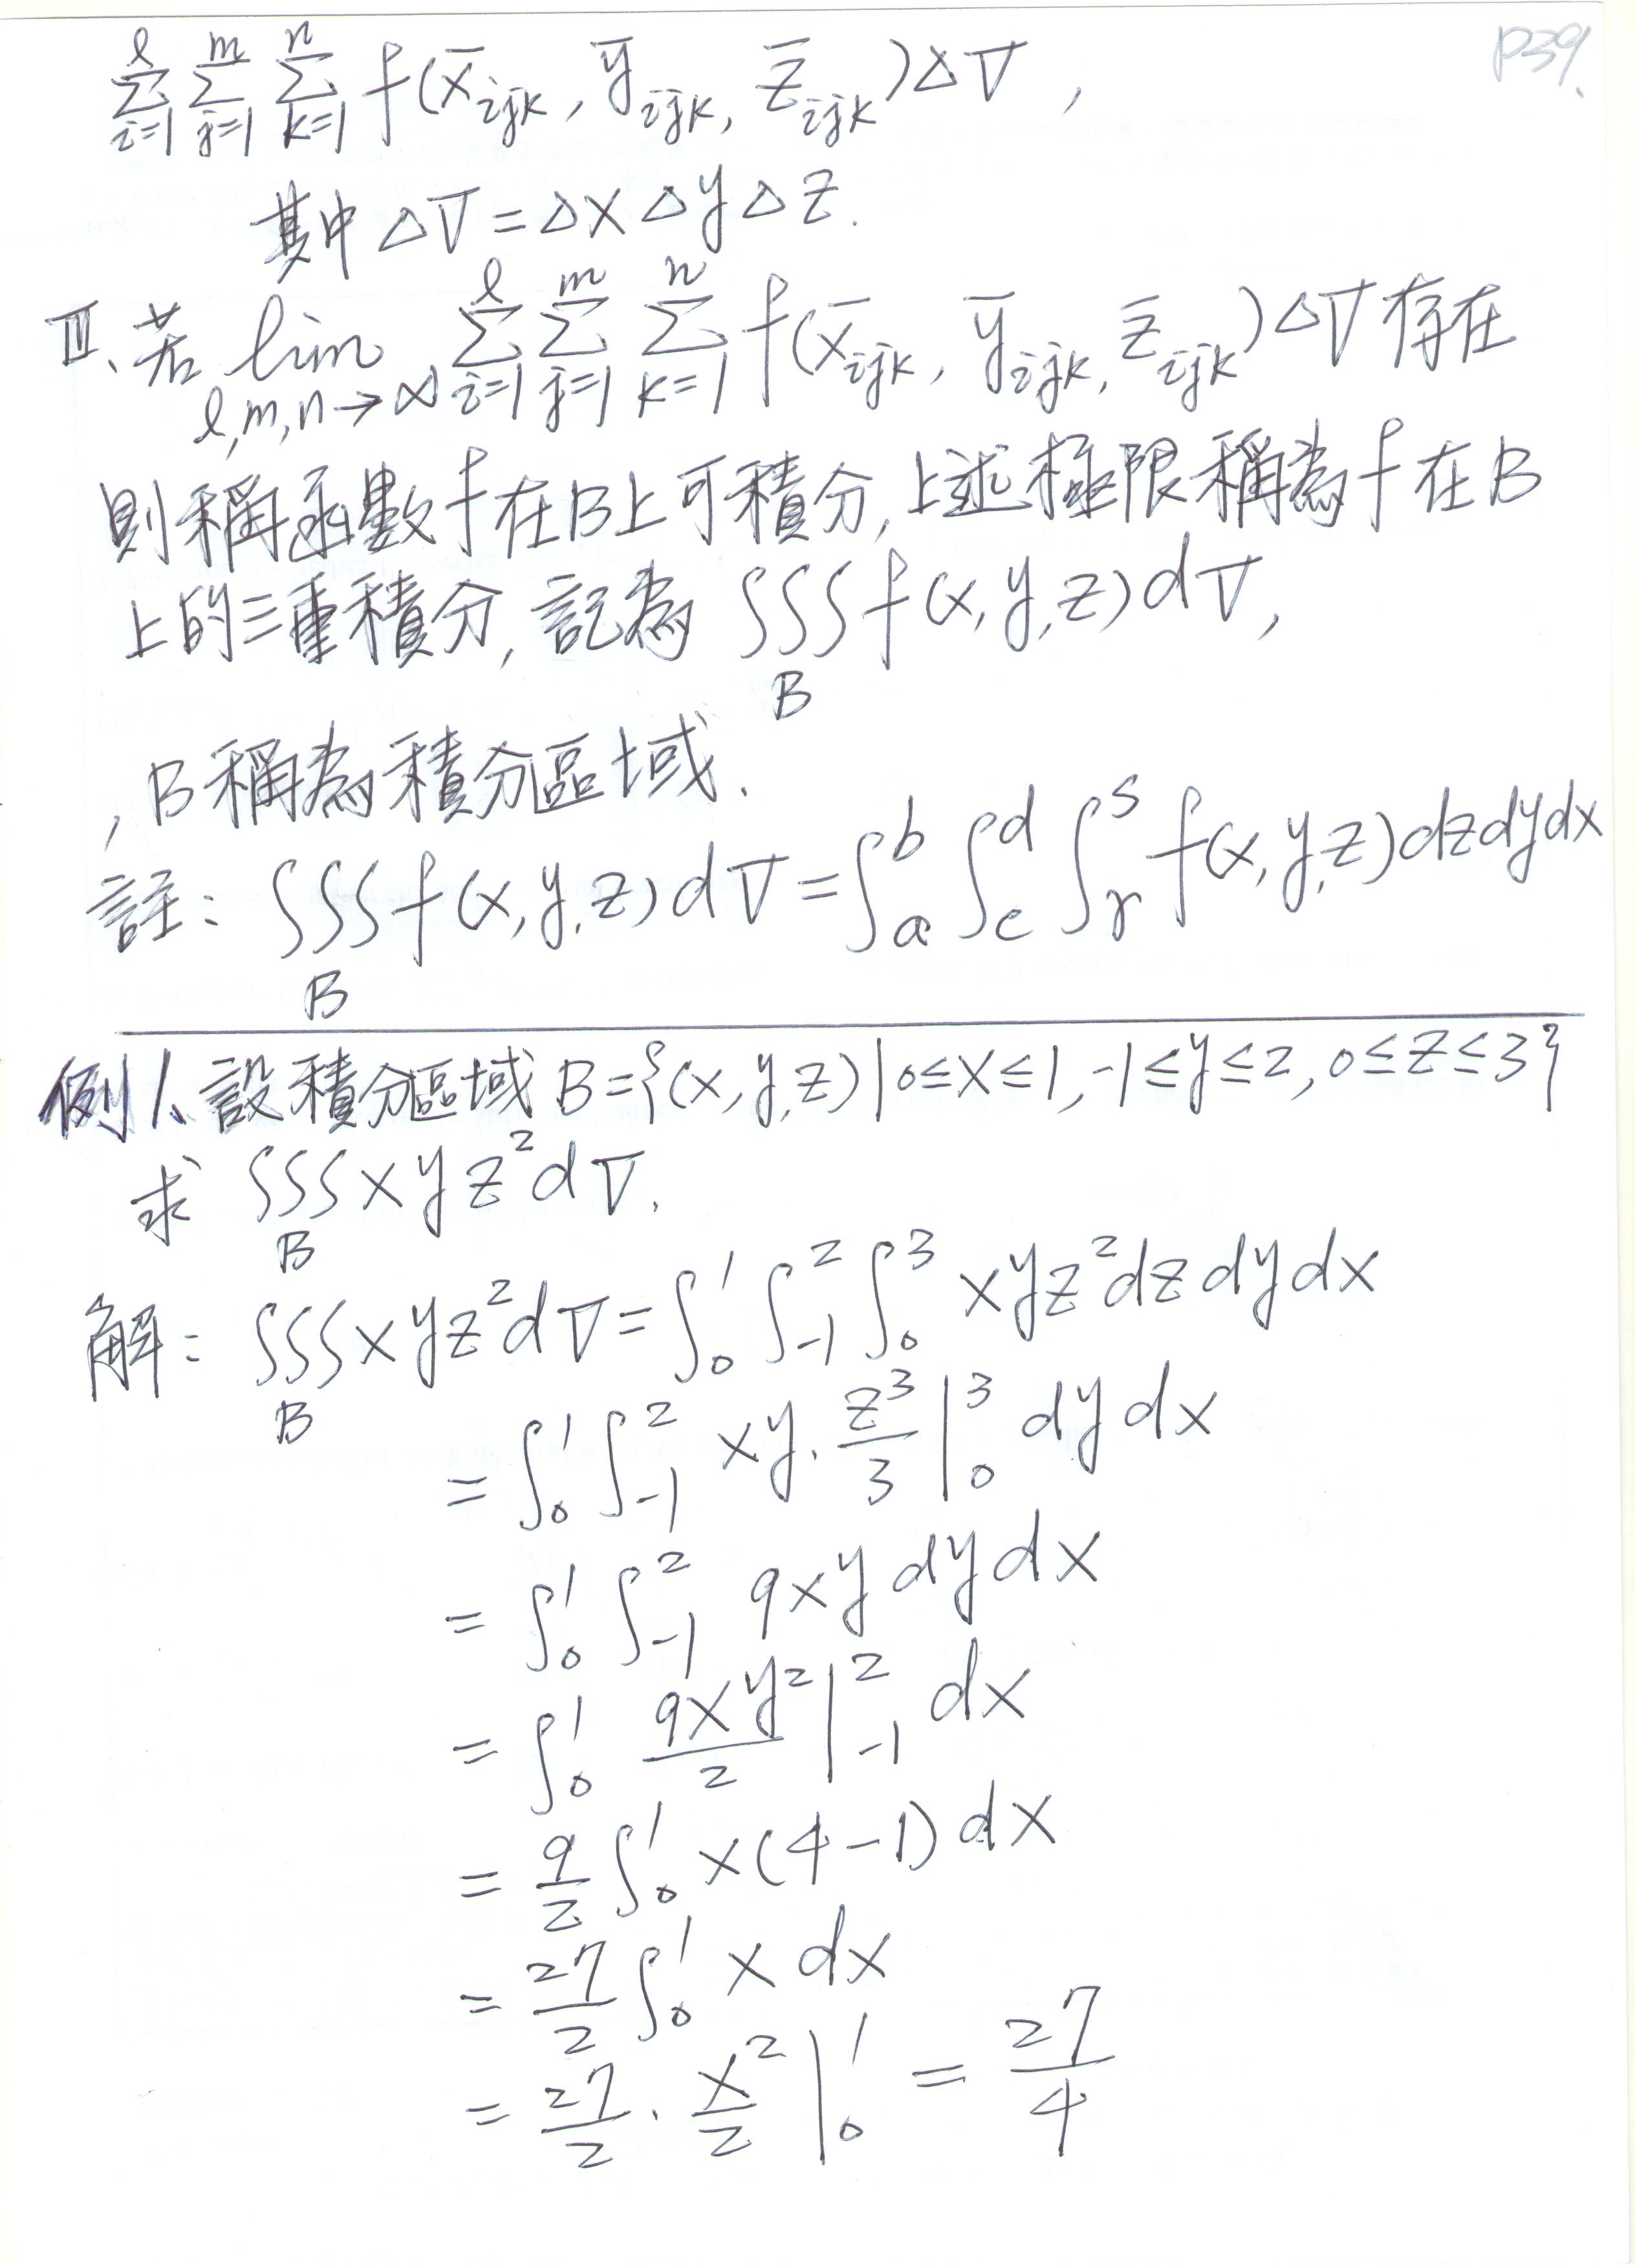 P39.
$\sum_{i=1}^{l} \sum_{j=1}^{m} \sum_{k=1}^{n} f(\bar{x}_{ijk}, \bar{y}_{ijk}, \bar{z}_{ijk}) \Delta V$ ,
其中 $\Delta V = \Delta x \Delta y \Delta z$.
Ⅲ、若 $\lim_{l,m,n \to \infty} \sum_{i=1}^{l} \sum_{j=1}^{m} \sum_{k=1}^{n} f(\bar{x}_{ijk}, \bar{y}_{ijk}, \bar{z}_{ijk}) \Delta V$ 存在
則稱函數 f 在B上可積分, 上述極限稱為 f 在 B
上的三重積分, 記為 $\iiint_B f(x, y, z) dV$,
, B 稱為積分區域.
註: $\iiint_B f(x, y, z) dV = \int_a^b \int_c^d \int_r^s f(x, y, z) dz dy dx$
例1、設積分區域 $B = \{(x, y, z) | 0 \le x \le 1, -1 \le y \le 2, 0 \le z \le 3\}$
求 $\iiint_B x y z^2 dV$.
解: $\iiint_B x y z^2 dV = \int_0^1 \int_{-1}^2 \int_0^3 x y z^2 dz dy dx$
$= \int_0^1 \int_{-1}^2 xy \cdot \frac{z^3}{3} |_0^3 dy dx$
$= \int_0^1 \int_{-1}^2 9xy dy dx$
$= \int_0^1 \frac{9xy^2}{2} |_{-1}^2 dx$
$= \frac{9}{2} \int_0^1 x(4-1) dx$
$= \frac{27}{2} \int_0^1 x dx$
$= \frac{27}{2} \cdot \frac{x^2}{2} |_0^1 = \frac{27}{4}$